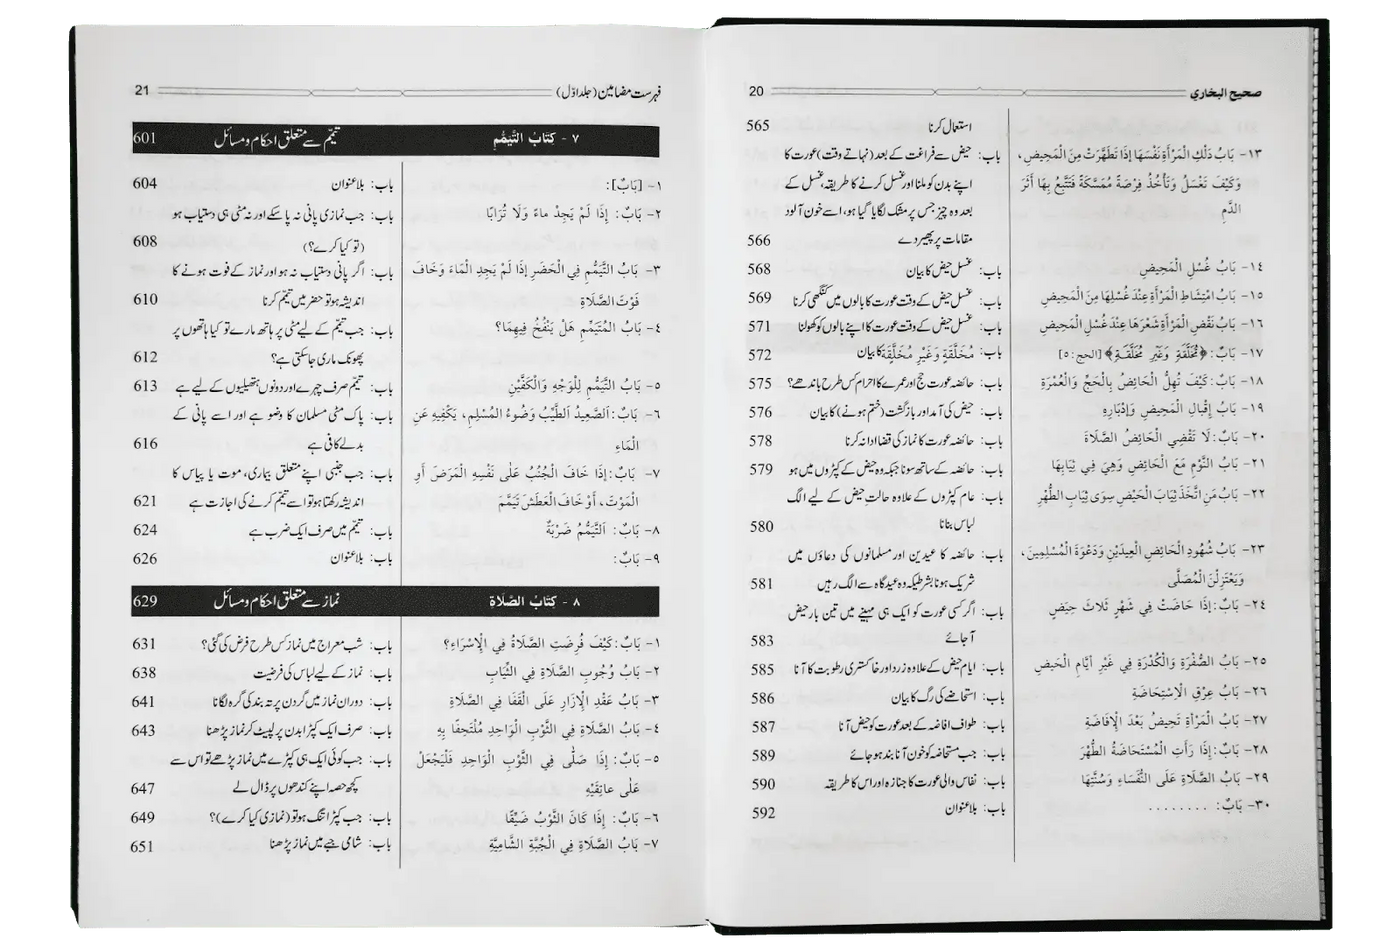 صحيح البخاري 20
استعمال کرنا 565
١٣- بَابُ دَلْكِ الْمَرْأَةِ نَفْسَهَا إِذَا تَطَهَّرَتْ مِنَ الْمَحِيضِ، باب: حیض سے فراغت کے بعد (نہاتے وقت) عورت کا
وَكَيْفَ تَغْسَلُ وَتَأْخُذُ فِرْصَةً مُمَسَّكَةً فَتَتَّبِعُ بِهَا أَثَرَ اپنے بدن کو ملنا اور غسل کرنے کا طریقہ، غسل کے
الدَّمِ بعد وہ چیز جس پر مشک لگایا گیا ہو، اسے خون آلود
مقامات پر پھیر دے 566
١٤- بَابُ غُسْلِ الْمَحِيضِ باب: غسل حیض کا بیان 568
١٥- بَابُ امْتِشَاطِ الْمَرْأَةِ عِنْدَ غُسْلِهَا مِنَ الْمَحِيضِ باب: غسل حیض کے وقت عورت کا بالوں میں کنگھی کرنا 569
١٦- بَابُ نَقْضِ الْمَرْأَةِ شَعْرَهَا عِنْدَ غُسْلِ الْمَحِيضِ باب: غسل حیض کے وقت عورت کا اپنے بالوں کو کھولنا 571
١٧- بَابٌ: ﴿مُخَلَّقَةٍ وَغَيْرِ مُخَلَّقَةٍ﴾ [الحج:٥] باب: مُخَلَّقَةٍ وَغَيْرِ مُخَلَّقَةٍ کا بیان 572
١٨- بَابٌ: كَيْفَ تُهِلُّ الْحَائِضُ بِالْحَجِّ وَالْعُمْرَةِ باب: حائضہ عورت حج اور عمرے کا احرام کس طرح باندھے؟ 575
١٩- بَابُ إِقْبَالِ الْمَحِيضِ وَإِدْبَارِهِ باب: حیض کی آمد اور بازگشت (ختم ہونے) کا بیان 576
٢٠- بَابٌ: لَا تَقْضِي الْحَائِضُ الصَّلَاةَ باب: حائضہ عورت کا نماز کی قضا ادا نہ کرنا 578
٢١- بَابُ النَّوْمِ مَعَ الْحَائِضِ وَهِيَ فِي ثِيَابِهَا باب: حائضہ کے ساتھ سونا جبکہ وہ حیض کے کپڑوں میں ہو 579
٢٢- بَابُ مَنِ اتَّخَذَ ثِيَابَ الْحَيْضِ سِوَى ثِيَابِ الطُّهْرِ باب: عام کپڑوں کے علاوہ حالتِ حیض کے لیے الگ
لباس بنانا 580
٢٣- بَابُ شُهُودِ الْحَائِضِ الْعِيدَيْنِ وَدَعْوَةَ الْمُسْلِمِينَ، باب: حائضہ کا عیدین اور مسلمانوں کی دعاؤں میں
وَيَعْتَزِلْنَ الْمُصَلَّى شریک ہونا بشرطیکہ وہ عیدگاہ سے الگ رہیں 581
٢٤- بَابٌ: إِذَا حَاضَتْ فِي شَهْرٍ ثَلَاثَ حِيَضٍ باب: اگر کسی عورت کو ایک ہی مہینے میں تین بار حیض
آ جائے 583
٢٥- بَابُ الصُّفْرَةِ وَالْكُدْرَةِ فِي غَيْرِ أَيَّامِ الْحَيْضِ باب: ایام حیض کے علاوہ زرد اور خاکستری رطوبت کا آنا 585
٢٦- بَابُ عِرْقِ الْاِسْتِحَاضَةِ باب: استحاضے کی رگ کا بیان 586
٢٧- بَابُ الْمَرْأَةِ تَحِيضُ بَعْدَ الْإِفَاضَةِ باب: طواف افاضہ کے بعد عورت کو حیض آنا 587
٢٨- بَابٌ: إِذَا رَأَتِ الْمُسْتَحَاضَةُ الطُّهْرَ باب: جب مستحاضہ کو خون آنا بند ہو جائے 589
٢٩- بَابُ الصَّلَاةِ عَلَى النُّفَسَاءِ وَسُنَّتِهَا باب: نفاس والی عورت کا جنازہ اور اس کا طریقہ 590
٣٠- بَابٌ: ........ باب: بلا عنوان 592
فہرست مضامین (جلد اوّل) 21
٧ - كِتَابُ التَّيَمُّمِ تیمّم سے متعلق احکام و مسائل 601
١- [بَابٌ]: باب: بلا عنوان 604
٢- بَابٌ: إِذَا لَمْ يَجِدْ مَاءً وَلَا تُرَابًا باب: جب نمازی پانی نہ پا سکے اور نہ مٹی ہی دستیاب ہو
(تو کیا کرے؟) 608
٣- بَابُ التَّيَمُّمِ فِي الْحَضَرِ إِذَا لَمْ يَجِدِ الْمَاءَ وَخَافَ باب: اگر پانی دستیاب نہ ہو اور نماز کے فوت ہونے کا
فَوْتَ الصَّلَاةِ اندیشہ ہو تو حضر میں تیمّم کرنا 610
٤- بَابُ الْمُتَيَمِّمِ هَلْ يَنْفُخُ فِيهِمَا؟ باب: جب تیمّم کے لیے مٹی پر ہاتھ مارے تو کیا ہاتھوں پر
پھونک ماری جا سکتی ہے؟ 612
٥- بَابُ التَّيَمُّمِ لِلْوَجْهِ وَالْكَفَّيْنِ باب: تیمّم صرف چہرے اور دونوں ہتھیلیوں کے لیے ہے 613
٦- بَابٌ: اَلصَّعِيدُ الطَّيِّبُ وَضُوءُ الْمُسْلِمِ، يَكْفِيهِ عَنِ باب: پاک مٹی مسلمان کا وضو ہے اور اسے پانی کے
الْمَاءِ بدلے کافی ہے 616
٧- بَابٌ: إِذَا خَافَ الْجُنُبُ عَلَى نَفْسِهِ الْمَرَضَ أَوِ باب: جب جنبی اپنے متعلق بیماری، موت یا پیاس کا
الْمَوْتَ، أَوْ خَافَ الْعَطَشَ تَيَمَّمَ اندیشہ رکھتا ہو تو اسے تیمّم کرنے کی اجازت ہے 621
٨- بَابٌ: اَلتَّيَمُّمُ ضَرْبَةٌ باب: تیمّم میں صرف ایک ضرب ہے 624
٩- بَابٌ: باب: بلا عنوان 626
٨ - كِتَابُ الصَّلَاةِ نماز سے متعلق احکام و مسائل 629
١- بَابٌ: كَيْفَ فُرِضَتِ الصَّلَاةُ فِي الْإِسْرَاءِ؟ باب: شب معراج میں نماز کس طرح فرض کی گئی؟ 631
٢- بَابُ وُجُوبِ الصَّلَاةِ فِي الثِّيَابِ باب: نماز کے لیے لباس کی فرضیت 638
٣- بَابُ عَقْدِ الْإِزَارِ عَلَى الْقَفَا فِي الصَّلَاةِ باب: دوران نماز میں گردن پر تہ بند کی گرہ لگانا 641
٤- بَابُ الصَّلَاةِ فِي الثَّوْبِ الْوَاحِدِ مُلْتَحِفًا بِهِ باب: صرف ایک کپڑا بدن پر لپیٹ کر نماز پڑھنا 643
٥- بَابٌ: إِذَا صَلَّى فِي الثَّوْبِ الْوَاحِدِ فَلْيَجْعَلْ باب: جب کوئی ایک ہی کپڑے میں نماز پڑھے تو اس سے
عَلَى عَاتِقَيْهِ کچھ حصہ اپنے کندھوں پر ڈال لے 647
٦- بَابٌ: إِذَا كَانَ الثَّوْبُ ضَيِّقًا باب: جب کپڑا تنگ ہو تو (نمازی کیا کرے)؟ 649
٧- بَابُ الصَّلَاةِ فِي الْجُبَّةِ الشَّامِيَّةِ باب: شامی جبے میں نماز پڑھنا 651